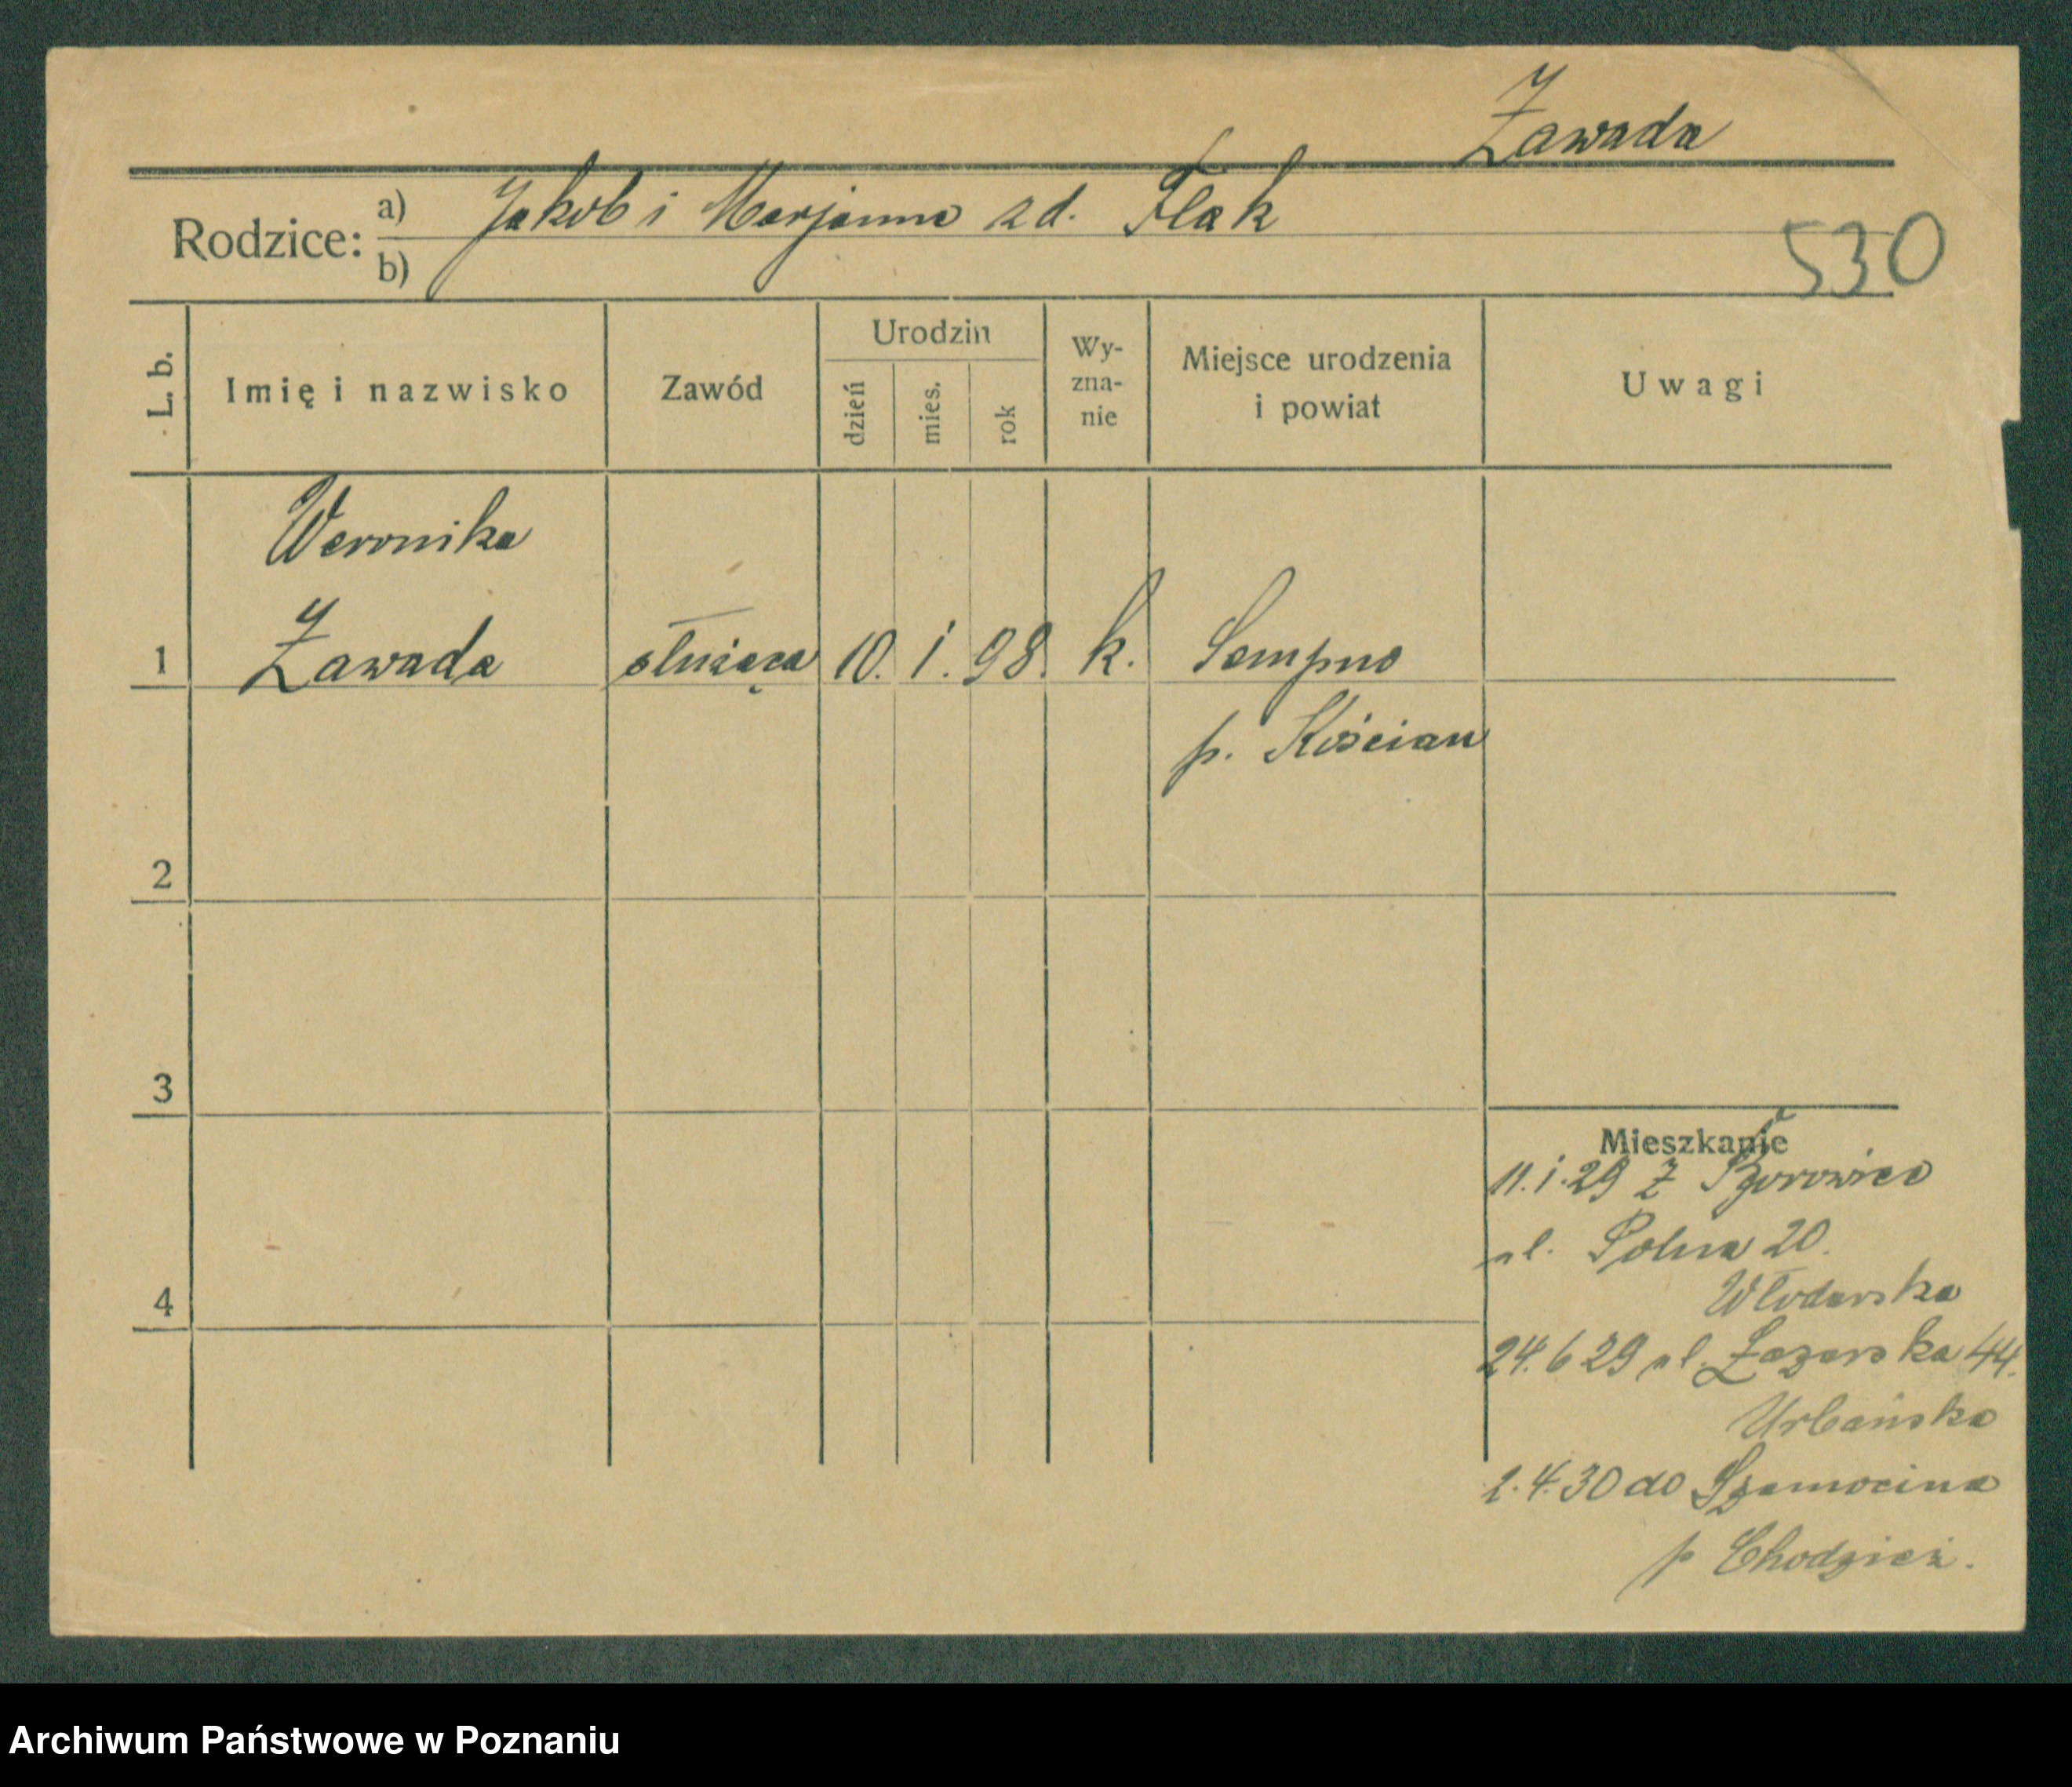 Zawada
Rodzice: a) Jakob i Marjanna zd. Flak
b)
530
L. b.
Imię i nazwisko
Zawód
Urodzin
dzień
mies.
rok
Wy-
zna-
nie
Miejsce urodzenia
i powiat
Uwagi
Weronika
1 Zawada służąca 10. 1. 98. k. Sempno
p. Kościan
2
3
4
Mieszkanie
11.1.29 z
ul. Polna 20.
Włodarska
24.6 29 ul. Łazarska 44.
Urbańska
1.4.30 do Szamocina
p Chodzież.
Archiwum Państwowe w Poznaniu